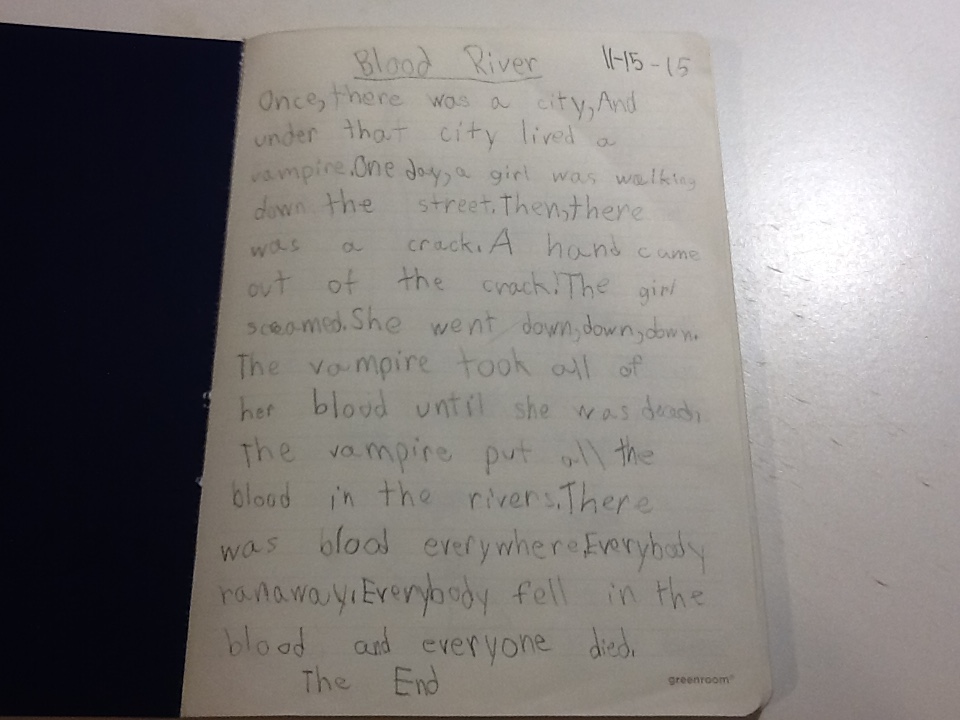 Blood River 11-15-15
Once, there was a city, And
under that city lived a
vampire. One day, a girl was walking
down the street. Then, there
was a crack. A hand came
out of the crack! The girl
sceamed. She went down, down, down.
The vampire took all of
her blood until she was dead.
The vampire put all the
blood in the rivers. There
was blood everywhere. Everybody
ranaway. Everybody fell in the
blood and everyone died.
The End
greenroom®